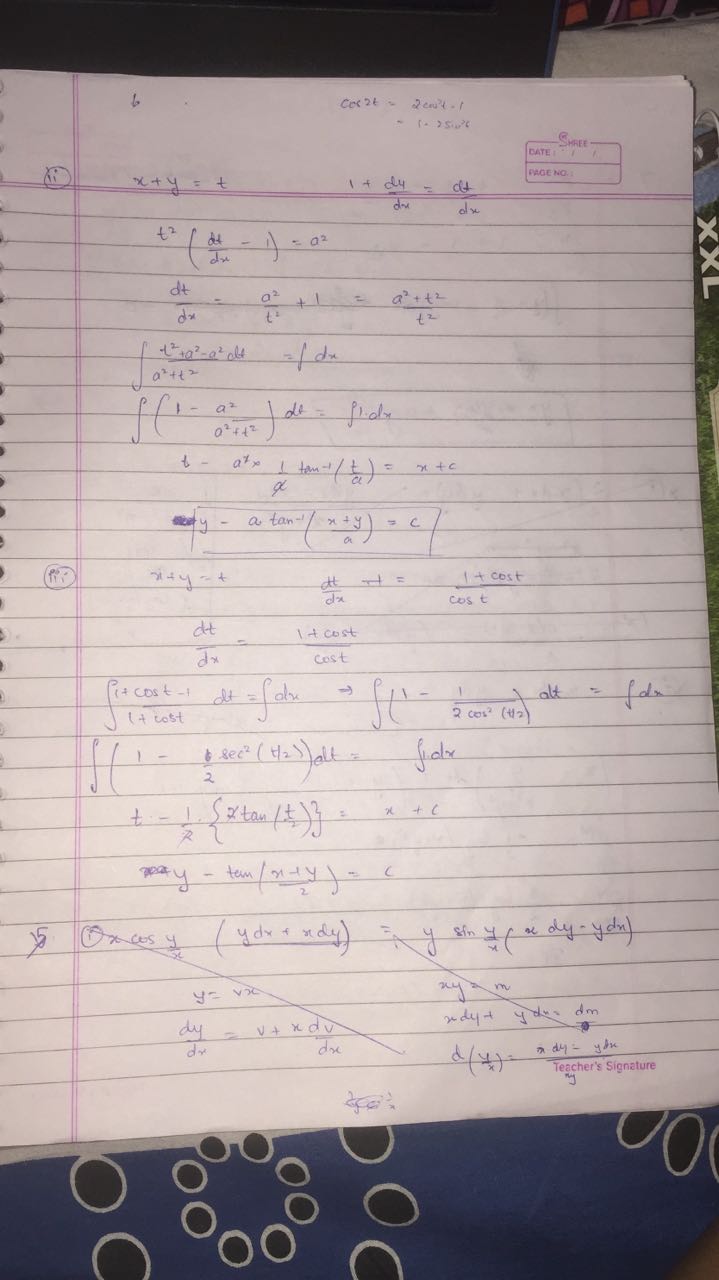 6
cos2t = 2cos²t - 1
= 1 - 2sin²t
SHREE
DATE: / /
PAGE NO.:
XXL
(ii) x + y = t 1 + dy/dx = dt/dx
t² (dt/dx - 1) = a²
dt/dx = a²/t² + 1 = (a² + t²)/t²
∫ (t² + a² - a²)/(a² + t²) dt = ∫ dx
∫ (1 - a²/(a² + t²)) dt = ∫ 1·dx
t - a² × 1/a tan⁻¹(t/a) = x + c
y - a tan⁻¹((x + y)/a) = c
(iii) x + y = t dt/dx = (1 + cos t)/cos t
dt/dx = (1 + cos t)/cos t
∫ (1 + cos t - 1)/(1 + cos t) dt = ∫ dx ⇒ ∫ (1 - 1/(2 cos² (t/2))) dt = ∫ dx
∫ (1 - 1/2 sec² (t/2)) dt = ∫ 1·dx
t - 1/2 · {2 tan (t/2)} = x + c
y - tan ((x + y)/2) = c
5 (i) x cos y/x (ydx + xdy) = y sin y/x (x dy - ydx)
y = vx xy = m
dy/dx = v + x dv/dx xdy + ydx = dm
d(y/x) = (x dy - ydx)/xy
Teacher's Signature